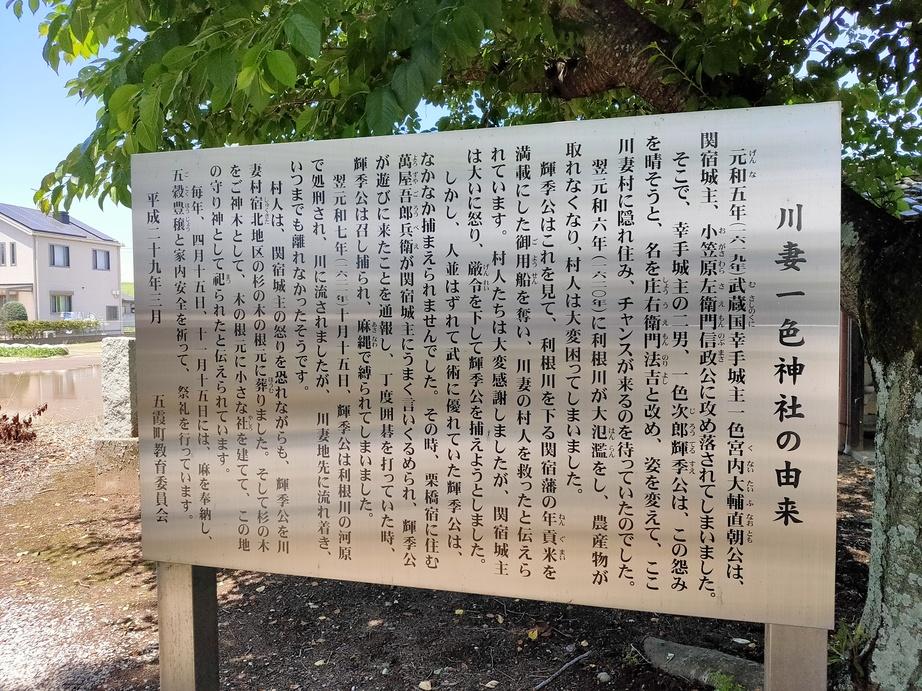 川妻一色神社の由来
元和五年(一六一九年)武蔵国幸手城主一色宮内大輔直朝公は、
関宿城主、小笠原左衛門信政公に攻め落されてしまいました。
そこで、幸手城主の二男、一色次郎輝季公は、この怨み
を晴そうと、名を庄右衛門法吉と改め、姿を変えて、ここ
川妻村に隠れ住み、チャンスが来るのを待っていたのでした。
翌元和六年(一六二〇年)に利根川が大氾濫をし、農産物が
取れなくなり、村人は大変困ってしまいました。
輝季公はこれを見て、利根川を下る関宿藩の年貢米を
満載にした御用船を奪い、川妻の村人を救ったと伝えら
れています。村人たちは大変感謝しましたが、関宿城主
は大いに怒り、厳命を下して輝季公を捕えようとしました。
しかし、人並はずれて武術に優れていた輝季公は、
なかなか捕まえられませんでした。その時、栗橋宿に住む
萬屋吾郎兵衛が関宿城主にうまく言いくるめられ、輝季公
が遊びに来たことを通報し、丁度囲碁を打っていた時、
輝季公は召し捕られ、麻縄で縛られてしまいました。
翌元和七年(一六二一年)十月十五日、輝季公は利根川の河原
で処刑され、川に流されましたが、川妻地先に流れ着き、
いつまでも離れなかったそうです。
村人は、関宿城主の怒りを恐れながらも、輝季公を川
妻村宿北地区の杉の木の根元に葬りました。そして杉の木
をご神木として、木の根元に小さな社を建てて、この地
の守り神として祀られたと伝えられています。
毎年、四月十五日、十一月十五日には、麻を奉納し、
五穀豊穣と家内安全を祈って、祭礼を行っています。
平成二十九年三月 五霞町教育委員会